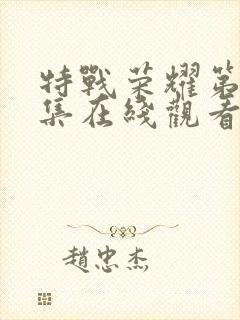 特戰荣耀第
集在綫觀看
趙忠杰